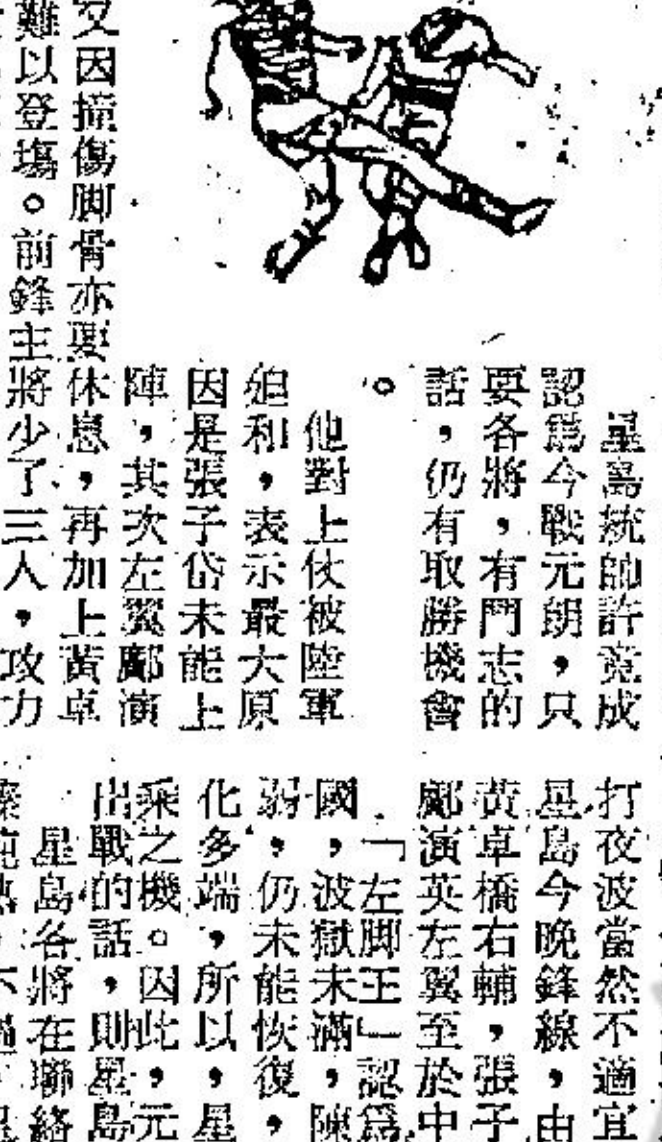 星島統帥許竟成
認爲今戰元朗,只
要各將,有鬥志的
話,仍有取勝機會
。
他對上仗被陸軍
迫和,表示最大原
因是張子岱未能上
陣,其次左翼鄺演
又因撞傷脚骨亦要休息,再加上黃卓
難以登塲。前鋒主將少了三人,攻力
打夜波當然不適宜
星島今晚鋒線,由
黃卓橋右輔,張子
鄺演英左翼至於中
「左脚王」認爲
國,波獄未滿,陳
弱,仍未能恢復,
化多端,所以,星
乘之機。因此,元
出戰的話,則星島
星島各將在聯絡